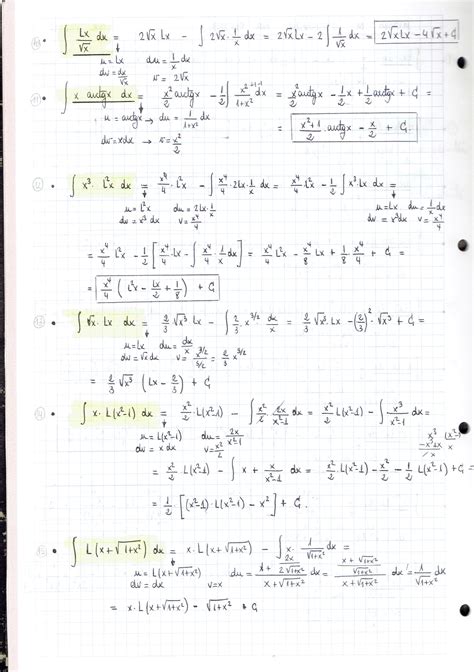 10 • ∫ Lx/√x dx = 2√x Lx - ∫ 2√x · 1/x dx = 2√x Lx - 2∫ 1/√x dx = 2√x Lx - 4√x + C
u = Lx du = 1/x dx
dv = dx/√x v = 2√x
11 • ∫ x arctgx dx = x²/2 arctgx - 1/2 ∫ (x²+1-1)/(1+x²) dx = x²/2 arctgx - 1/2 x + 1/2 arctgx + C =
u = arctgx → du = 1/(1+x²) dx
= (x²+1)/2 · arctgx - x/2 + C.
dv = xdx → v = x²/2
12 • ∫ x³ · L²x dx = x⁴/4 · L²x - ∫ x⁴/4 · 2Lx · 1/x dx = x⁴/4 L²x - 1/2 ∫ x³ · Lx dx =
u = L²x du = 2Lx · 1/x u = Lx du = 1/x dx
dv = x³ dx v = x⁴/4 dv = x³dx v = x⁴/4
= x⁴/4 L²x - 1/2 [x⁴/4 · Lx - ∫ x⁴/4 · 1/x dx] = x⁴/4 L²x - x⁴/8 Lx + 1/8 x⁴/4 + C =
= x⁴/4 (L²x - Lx/2 + 1/8) + C
13 • ∫ √x · Lx dx = 2/3 √x³ · Lx - ∫ 2/3 · x^3/2 dx/x = 2/3 √x³ Lx - (2/3)² · √x³ + C =
u = Lx du = dx/x
dv = √x dx v = x^3/2/3/2 = 2/3 x^3/2
= 2/3 √x³ (Lx - 2/3) + C
• ∫ x · L(x²-1) dx = x²/2 L(x²-1) - ∫ x²/2 · 2x/(x²-1) dx = x²/2 L(x²-1) - ∫ x³/(x²-1) =
u = L(x²-1) du = 2x/(x²-1)
dv = x dx v = x²/2
= x²/2 L(x²-1) - ∫ x + x/(x²-1) dx = x²/2 · L(x²-1) - x²/2 - 1/2 L(x²-1) + C =
= 1/2 [(x²-1) · L(x²-1) - x²] + C.
• ∫ L(x+√1+x²) dx = x · L(x+√1+x²) - ∫ x · 1/√1+x² dx =
u = L(x+√1+x²) du = (1 + 2x/2√1+x²)/(x+√1+x²) dx = ((x+√1+x²)/√1+x²)/(x+√1+x²) dx = 1/√1+x² dx
dv = dx v = x
= x · L(x+√1+x²) - √1+x² + C